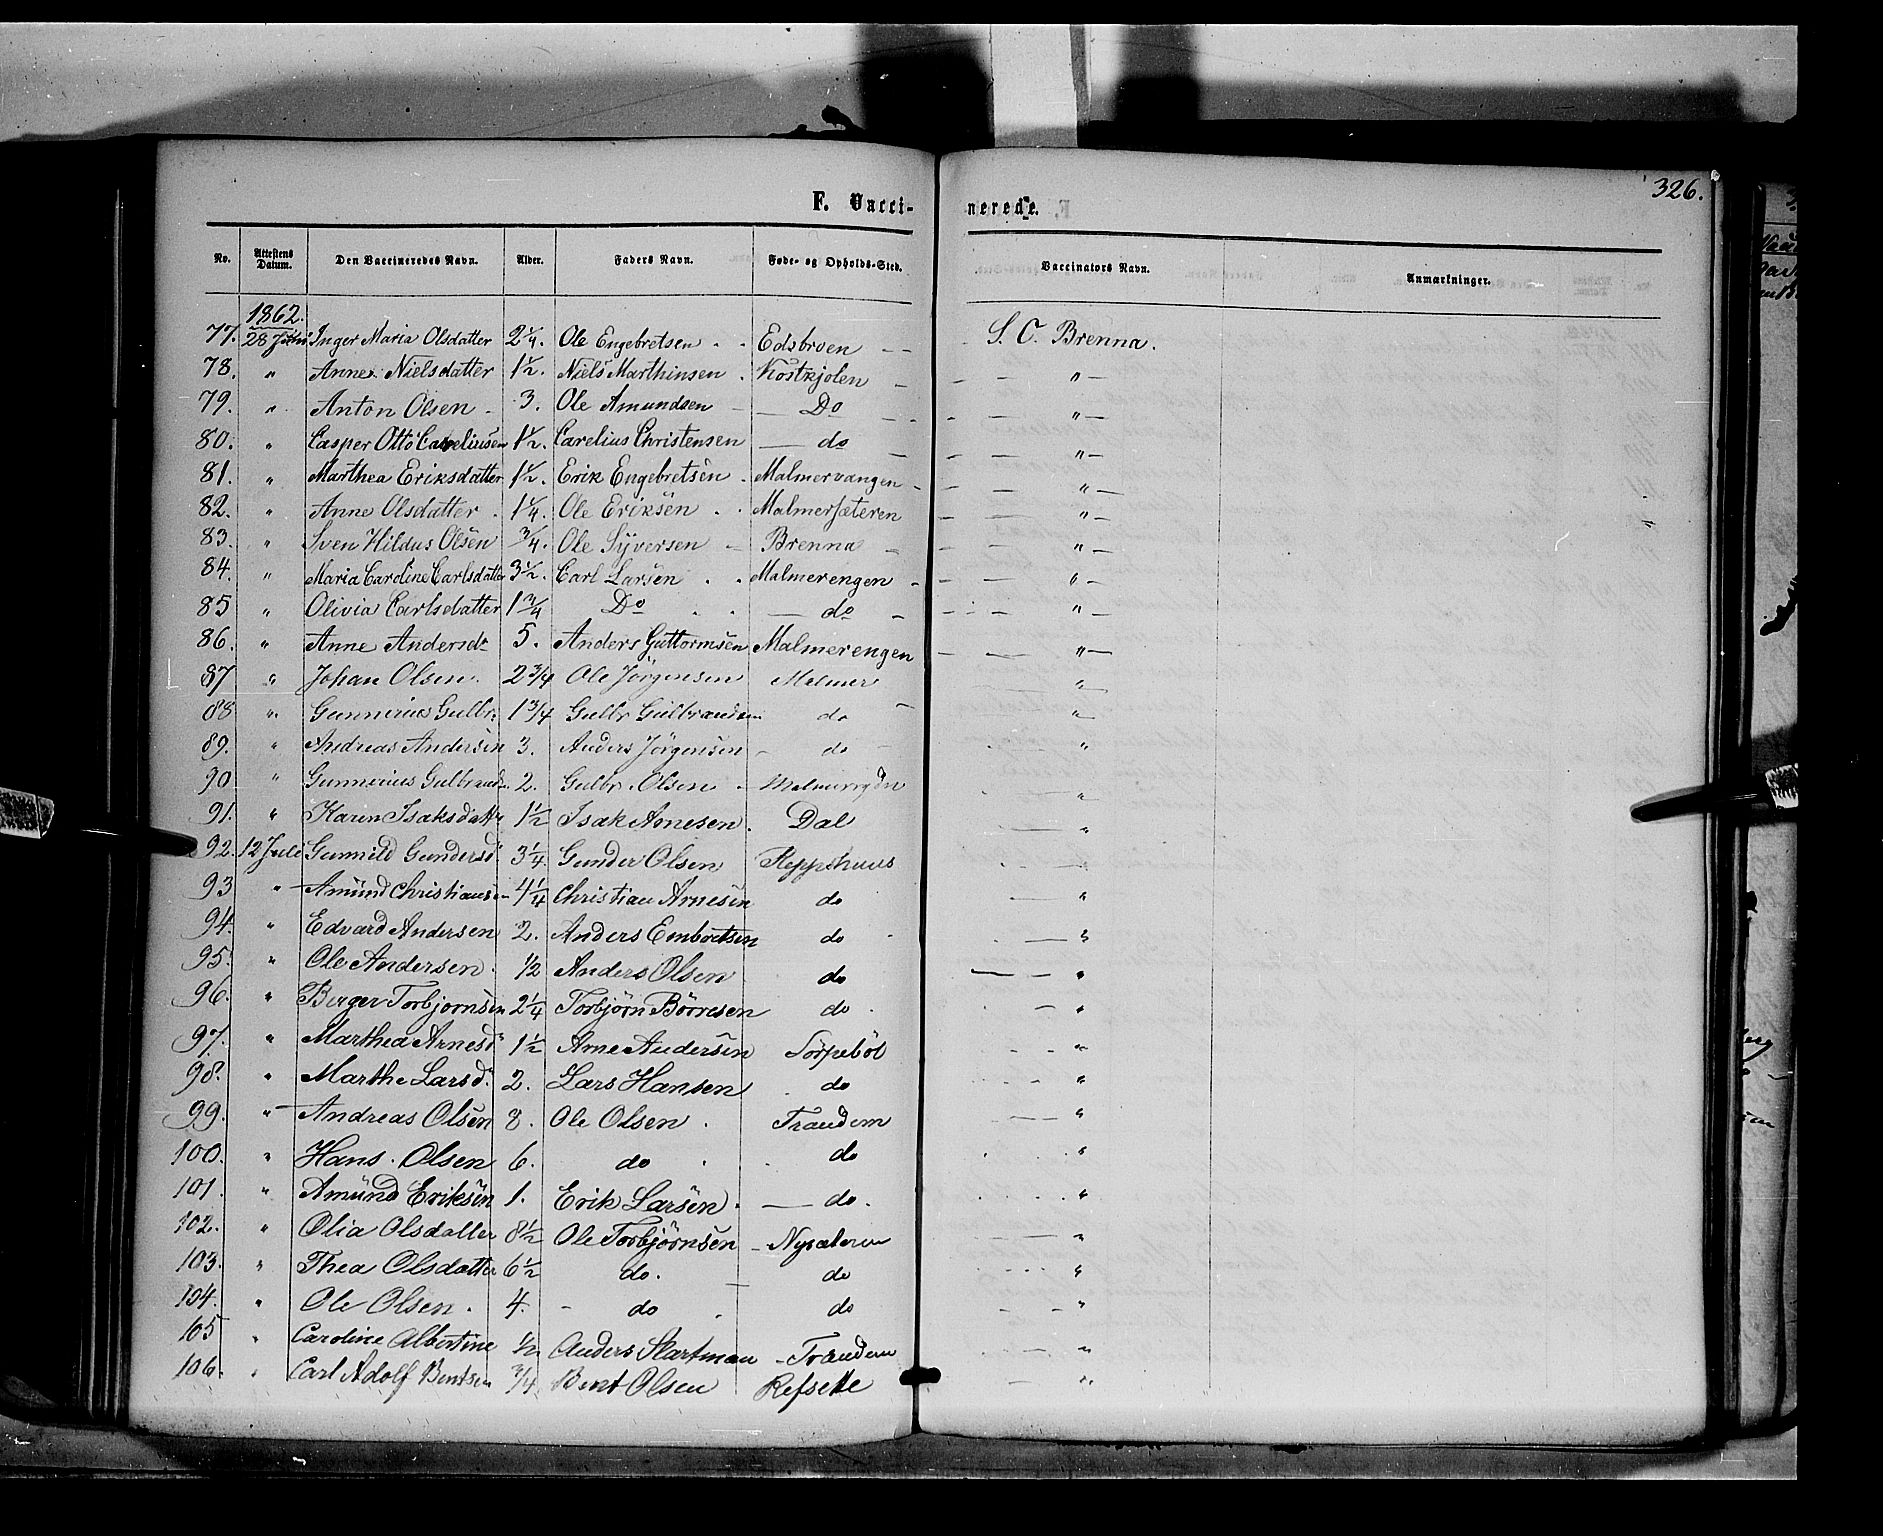 326.
F. Vaccinerede.
No. Attestens Datum. Den Vaccineredes Navn. Alder. Faders Navn. Føde- og Opholds-Sted. Vaccinators Navn. Anmærkninger.
1862.
77. 28 Juni Inger Maria Olsdatter 2¼. Ole Engebretsen Edsbroen S. O. Brenna.
78. " Anne Nielsdatter 1½. Niels Marthinsen Kostkjolen "
79. " Anton Olsen 3. Ole Amundsen Do "
80. " Casper Otto Careliusen 1½. Carelius Christensen do "
81. " Marthea Eriksdatter 1½. Erik Engebretsen Malmervangen "
82. " Anne Olsdatter 1¼. Ole Eriksen Malmersæteren "
83. " Sven Hildus Olsen ¾. Ole Syversen Brenna "
84. " Maria Caroline Carlsdatter 3½. Carl Larsen Malmerengen "
85 " Olivia Carlsdatter 1¾ Do do "
86. " Anne Andersdr 5. Anders Guttormsen Malmerengen "
87 " Johan Olsen. 2¾ Ole Jörgensen Malmer "
88 " Gunnerius Gulbr. 1¾ Gulbr Gulbrandsen do "
89. " Andreas Andersen 3. Anders Jörgensen do "
90 " Gunnerius Gulbrands. 2. Gulbr. Olsen "
91. " Karen Isaksdattr 1½ Isak Arnesen. Dal "
92. 12 Juli Gunnild Gundersd 3¼ Gunder Olsen Kleppehuus
93 " Amund Christiansen 4¼ Christian Arnesen do "
94. " Edvard Andersen 2. Anders Embretsen do "
95. " Ole Andersen. ½ Anders Olsen do "
96. " Berger Torbjornsen 2¼ Torbjörn Börresen do "
97. " Marthea Arnesd 1½ Arne Andersen Sörpeböl "
98. " Marthe Larsd. 2. Lars Hansen do "
99. " Andreas Olsen 8. Ole Olsen Trandem "
100. " Hans. Olsen 6. do do "
101. " Amund Eriksen 1. Erik Larsen. do. "
102. " Olia Olsdatter 8½ Ole Torbjörnsen Nysæteren "
103. " Thea Olsdatter 6½ do. do "
104. " Ole Olsen. 4. do do "
105 " Caroline Albertine ½ Anders Skartman Trandem "
106. " Carl Adolf Bentsen ¾ Bent Olsen Refsette "